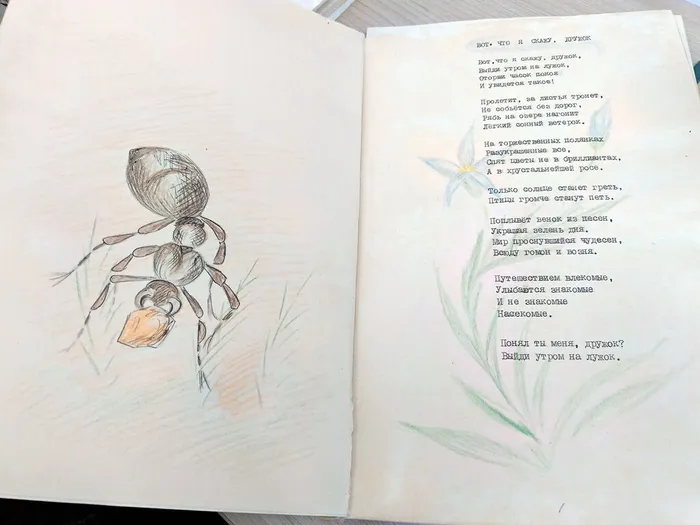 ВОТ, ЧТО Я СКАЖУ, ДРУЖОК
Вот,что я скажу, дружок,
Выйди утром на лужок,
Оторви часок покоя
И увидется такое!
Пролетит, за листья тронет,
Не собьётся без дорог,
Рябь на озера нагонит
Лёгкий сонный ветерок.
На торжественных полянках
Разукрашенные все,
Спят цветы не в бриллиантах,
А в хрустальнейшей росе.
Только солнце станет греть,
Птицы громче станут петь.
Поплывёт венок из песен,
Украшая зелень дня.
Мир проснувшийся чудесен,
Всюду гомон и возня.
Путешествием влекомые,
Улыбаются знакомые
И не знакомые
Насекомые.
Понял ты меня, дружок?
Выйди утром на лужок.